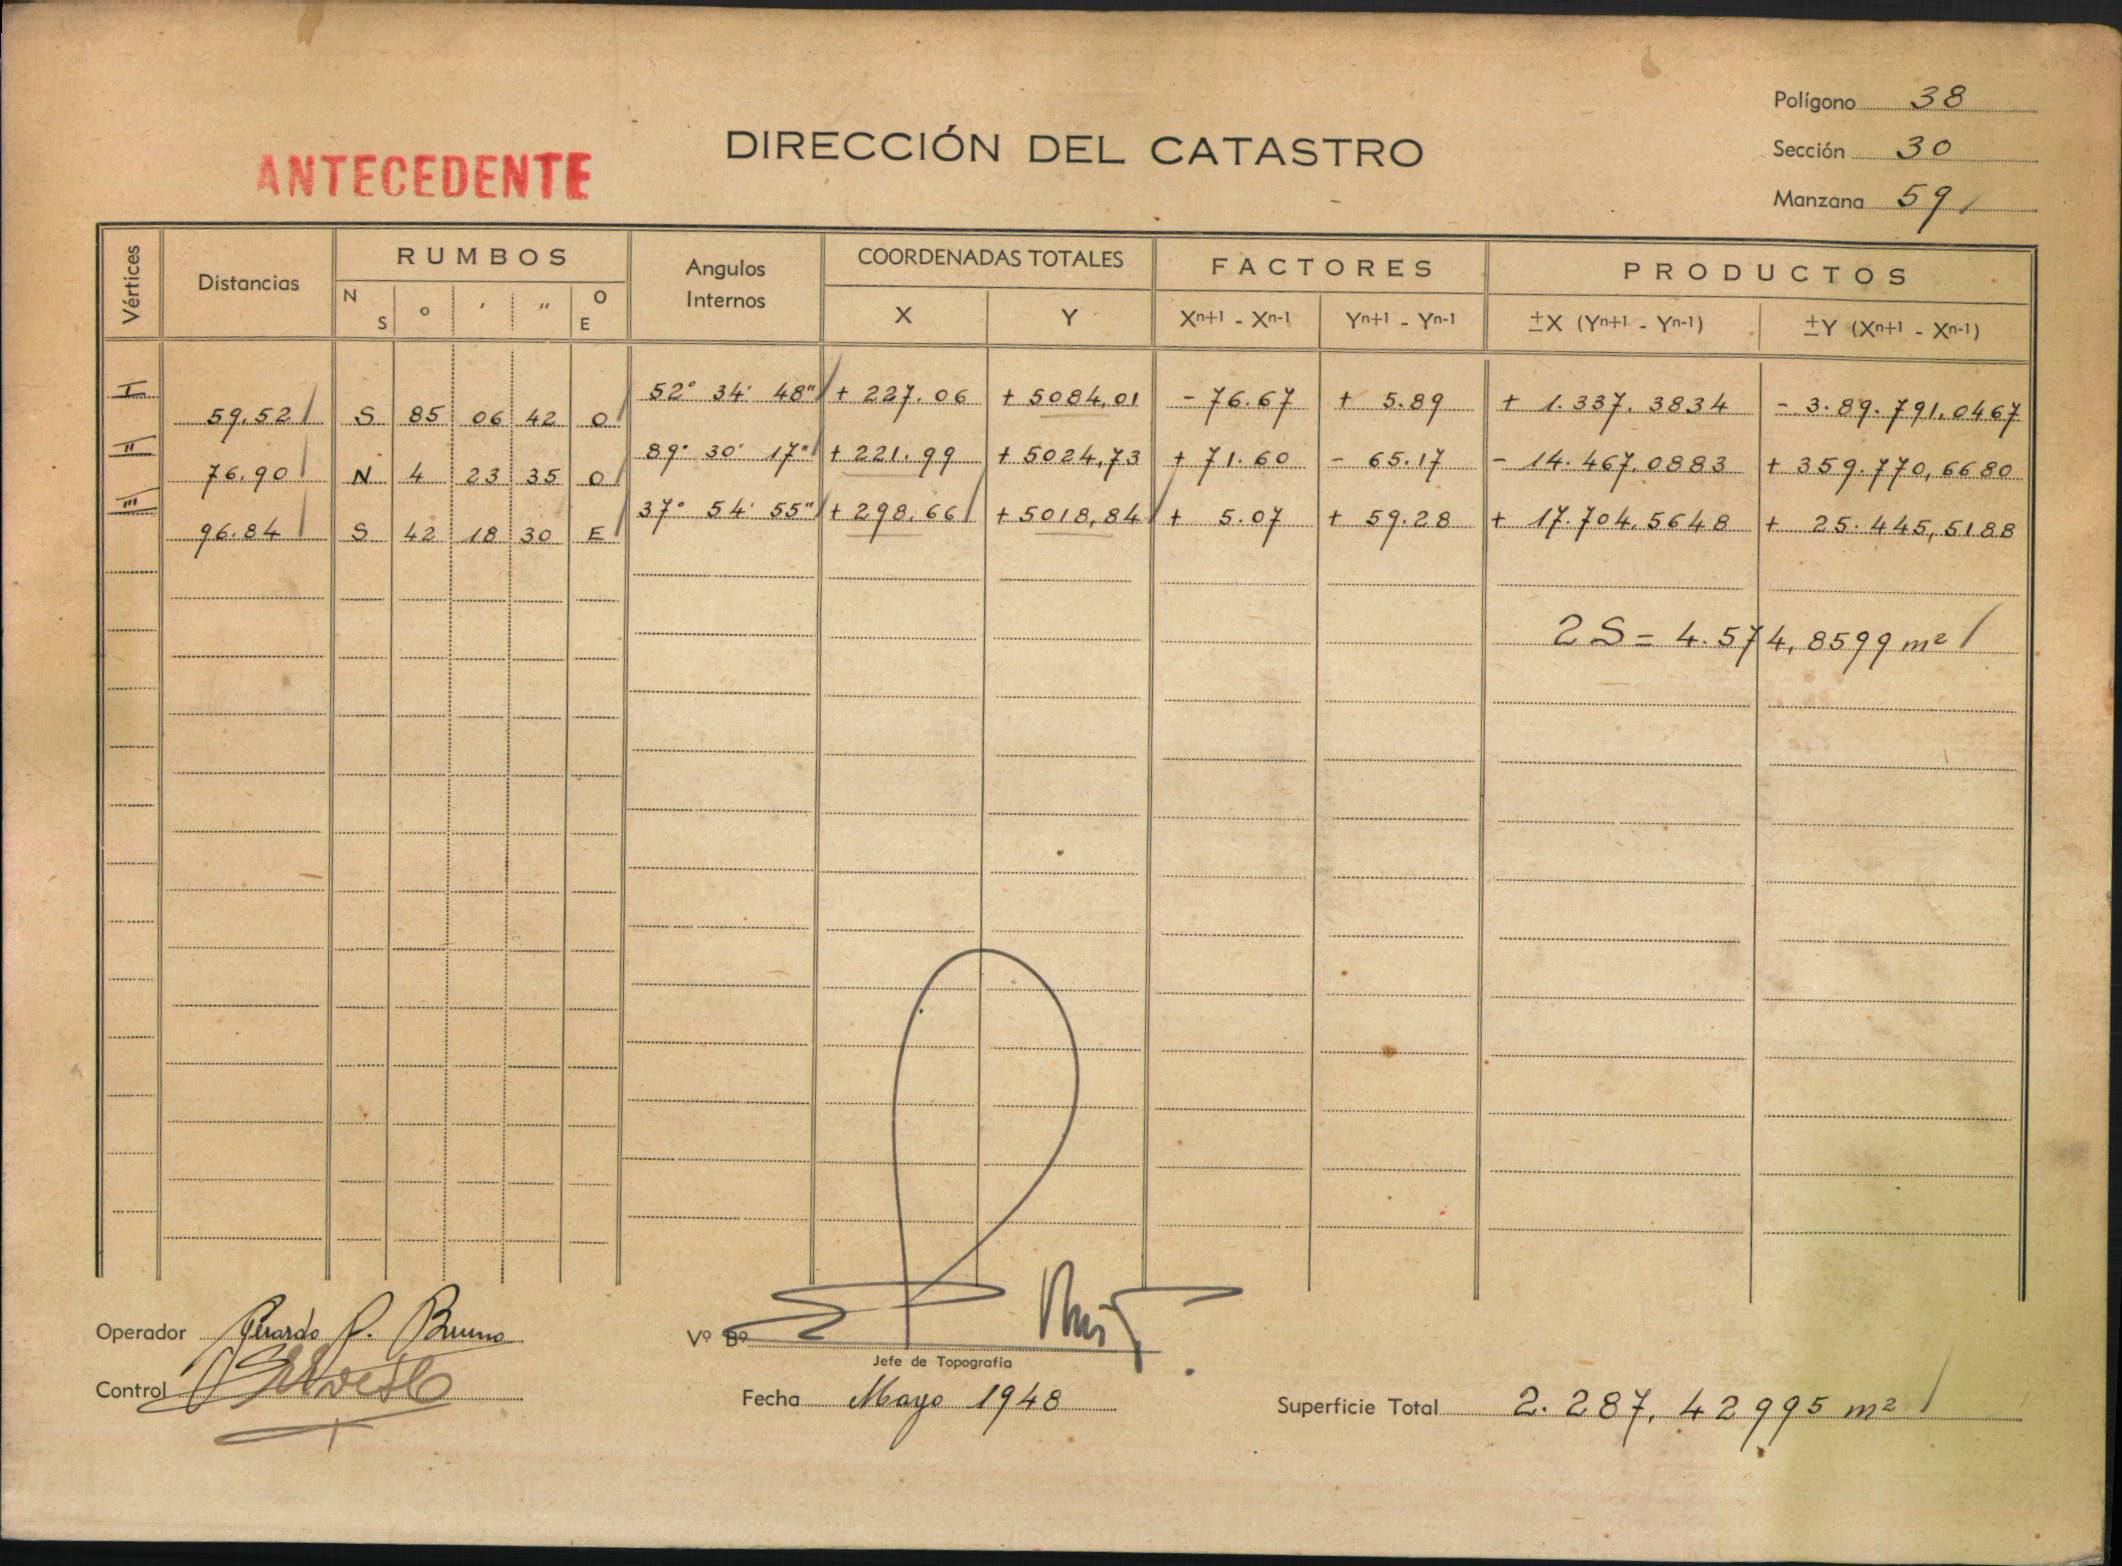 Polígono 38
DIRECCIÓN DEL CATASTRO
ANTECEDENTE
Sección 30
Manzana 59
Vértices Distancias RUMBOS Angulos Internos COORDENADAS TOTALES FACTORES PRODUCTOS
N S ° ' " O E X Y Xn+1 - Xn-1 Yn+1 - Yn-1 ±X (Yn+1 - Yn-1) ±Y (Xn+1 - Xn-1)
I 52° 34' 48" + 227.06 + 5084,01 - 76.67 + 5.89 + 1.337.3834 - 3.89.791,0467
59,52 S 85 06 42 O
II 89° 30' 17" + 221.99 + 5024,73 + 71.60 - 65.17 - 14.467,0883 + 359.770,6680
76,90 N 4 23 35 O
III 37° 54' 55" + 298,66 + 5018,84 + 5.07 + 59.28 + 17.704,5648 + 25.445,5188
96.84 S 42 18 30 E
2S = 4.574,8599 m²
Operador Gerardo P. Bruno
Vº Bº
Jefe de Topografía
Control
Fecha Mayo 1948
Superficie Total 2.287,42995 m²